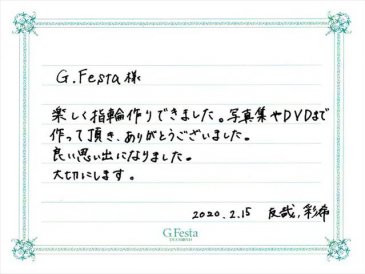 G.Festa様
楽しく指輪作りできました。写真集やDVDまで
作って頂き、ありがとうございました。
良い思い出になりました。
大切にします。
2020.2.15 友哉,彩希
G.Festa
DIAMOND